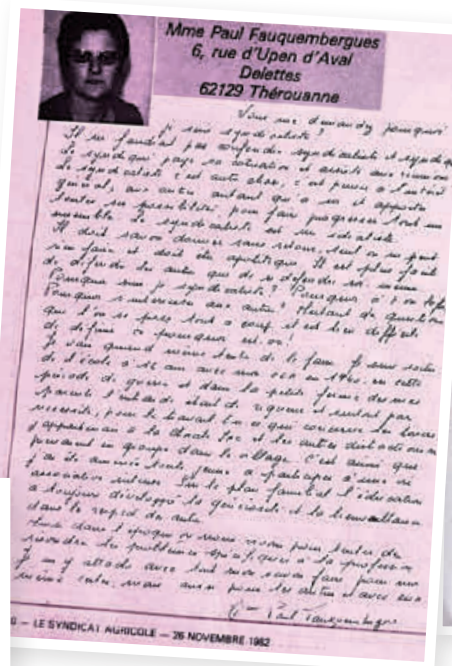 Mme Paul Fauquembergues
6, rue d'Upen d'Aval
Delettes
62129 Thérouanne
Vous me demandez pourquoi
je suis syndicaliste ?
Il ne faudrait pas confondre syndicaliste et syndiqué
Le syndiqué paye sa cotisation et assiste aux réunions
Le syndicaliste c'est autre chose, c'est penser à l'intérêt
général, aux autres autant qu'à soi et apporter
toutes ses possibilités, pour faire progresser tout un
ensemble. Le syndicaliste est un idéaliste.
Il doit savoir donner sans retour, tout ou ne peut
rien faire et doit être apolitique. Il est plus facile
de défendre les autres que de se défendre soi même.
Pourquoi suis je syndicaliste ? Pourquoi
Pourquoi s'intéresser aux autres ? Autant de questions
que l'on se pose tout à coup, et il est bien difficile
de définir ce pourquoi
Je vais quand même tenter de le faire. Je suis sortie
de l'école à 12 ans avec mon CEP en 1940. en cette
période de guerre et dans la petite ferme de mes
parents l'entraide était de rigueur et surtout par
nécessité, pour le travail en ce qui concerne
j'ai été amenée toute jeune à participer à une vie
associative intense. Sur le plan familial l'éducation
a toujours développé la générosité et la bienveillance
dans le respect des autres.
dans l'époque où nous vivons pour tenter de
résoudre les problèmes spécifiques à la profession
je m'y attache avec tout mon savoir faire pour moi
même certes, mais aussi pour les autres et avec eux.
Mme Paul Fauquembergues
— LE SYNDICAT AGRICOLE — 26 NOVEMBRE 1982